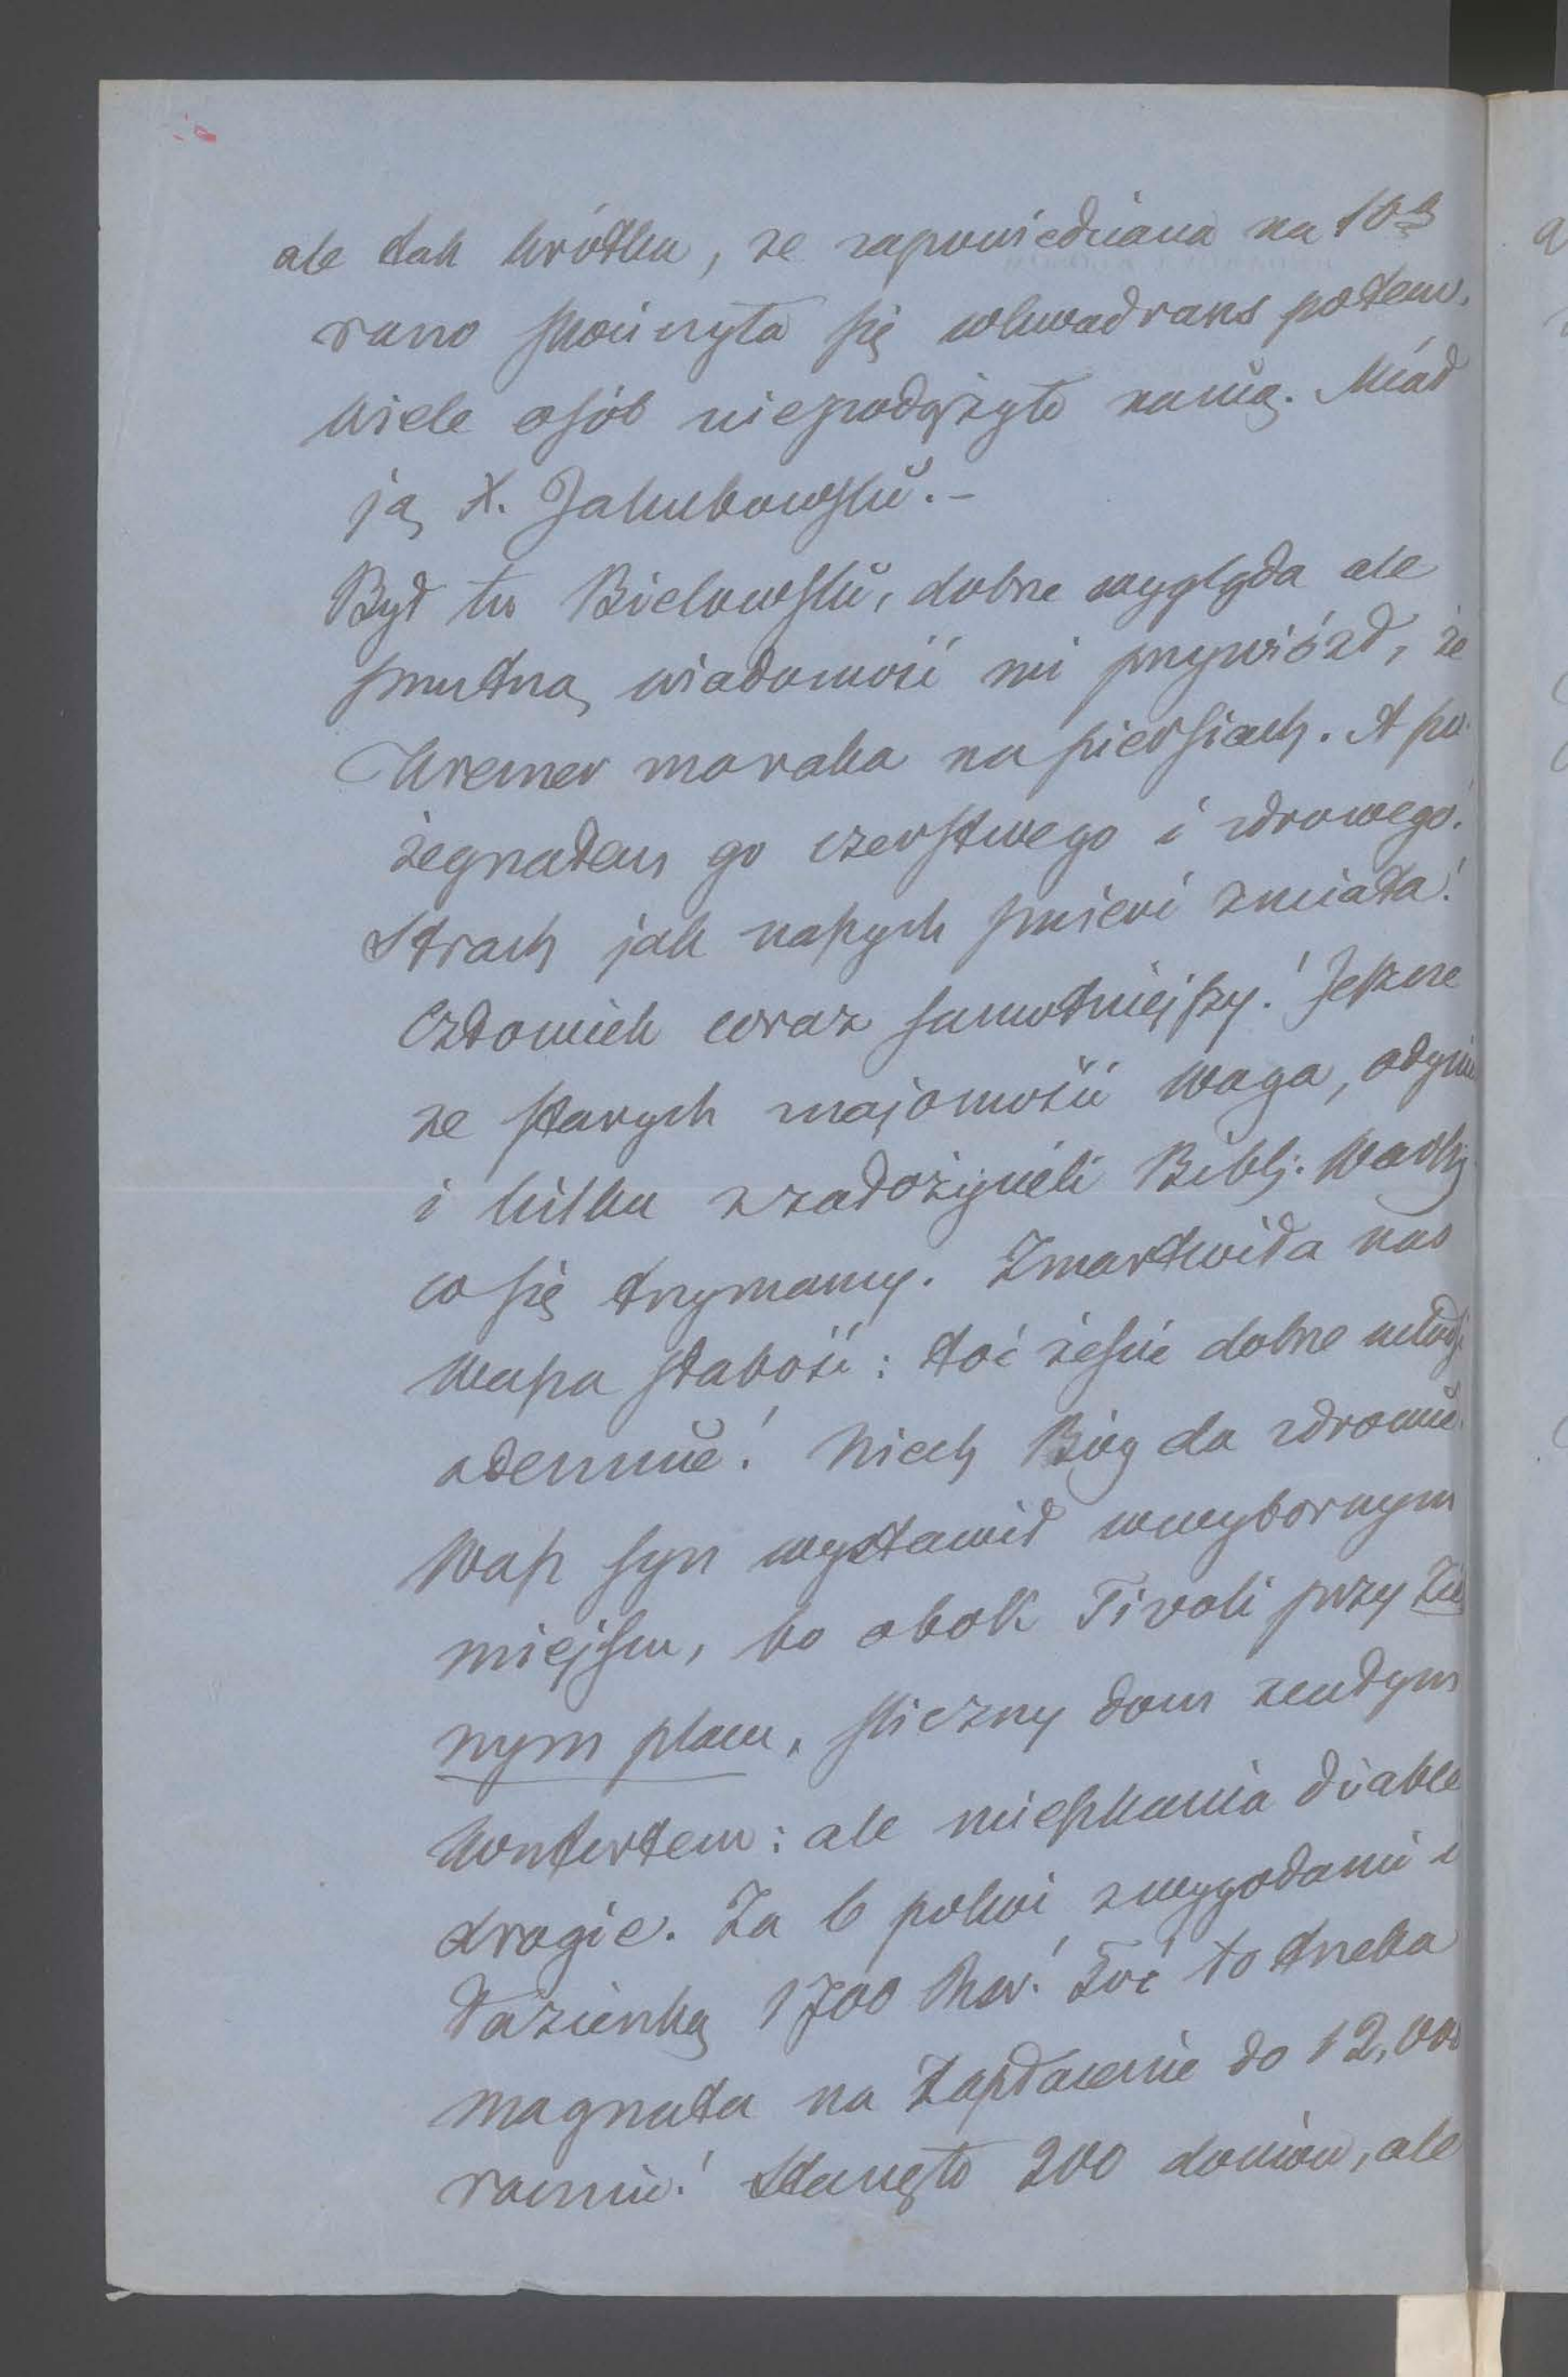 ale tak krótka, że zapowiedziana na 10ą
rano skończyła się wkwadrans potem.
Wiele osób niepodążyło na nią. Miał
ją X. Jakubowski. –
Był tu Bielowski, dobrze wygląda ale
smutną wiadomość mi przywiózł, że
Kremer ma raka na piersiach. A po-
żegnałem go czerstwego i zdrowego!
Strach jak naszych śmierć zmiata!
Człowiek coraz samotniejszy! Jeszcze
ze starych znajomości Waga, Odyniec
i kilku z założycieli Bibl. Warsz.
co się trzymamy. Zmartwiła nas
Wasza słabość: toć jesteście dobrze młodsi
odemnie! Niech Bóg da zdrowie.
Wasz syn wystawił wwybornym
miejscu, bo obok Tivoli przy Zie
nym placu, śliczny dom zcałym
konfortem: ale mieszkania diable
drogie. Za 6 pokoi zwygodami i
łazienką 1700 Rsr! Toć to trzeba
magnata na zapłacenie do 12,000
rocznie! Stanęło 200 domów, ale